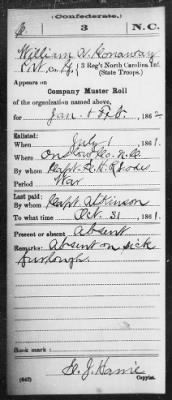 (Confederate.)
3 N.C.
William
3 Reg't North Carolina Inf.
(State Troops.)
Appears on
Company Muster Roll
of the organization named above,
for Jan. & Feb., 186
Enlisted:
When July 1, 1861.
Where Onslow Co. N.C.
By whom Capt.
Period War
Last paid:
By whom Capt. Atkinson
To what time Oct. 31, 1861.
Present or absent Absent
Remarks: Absent on sick
furlough.
Copyist.